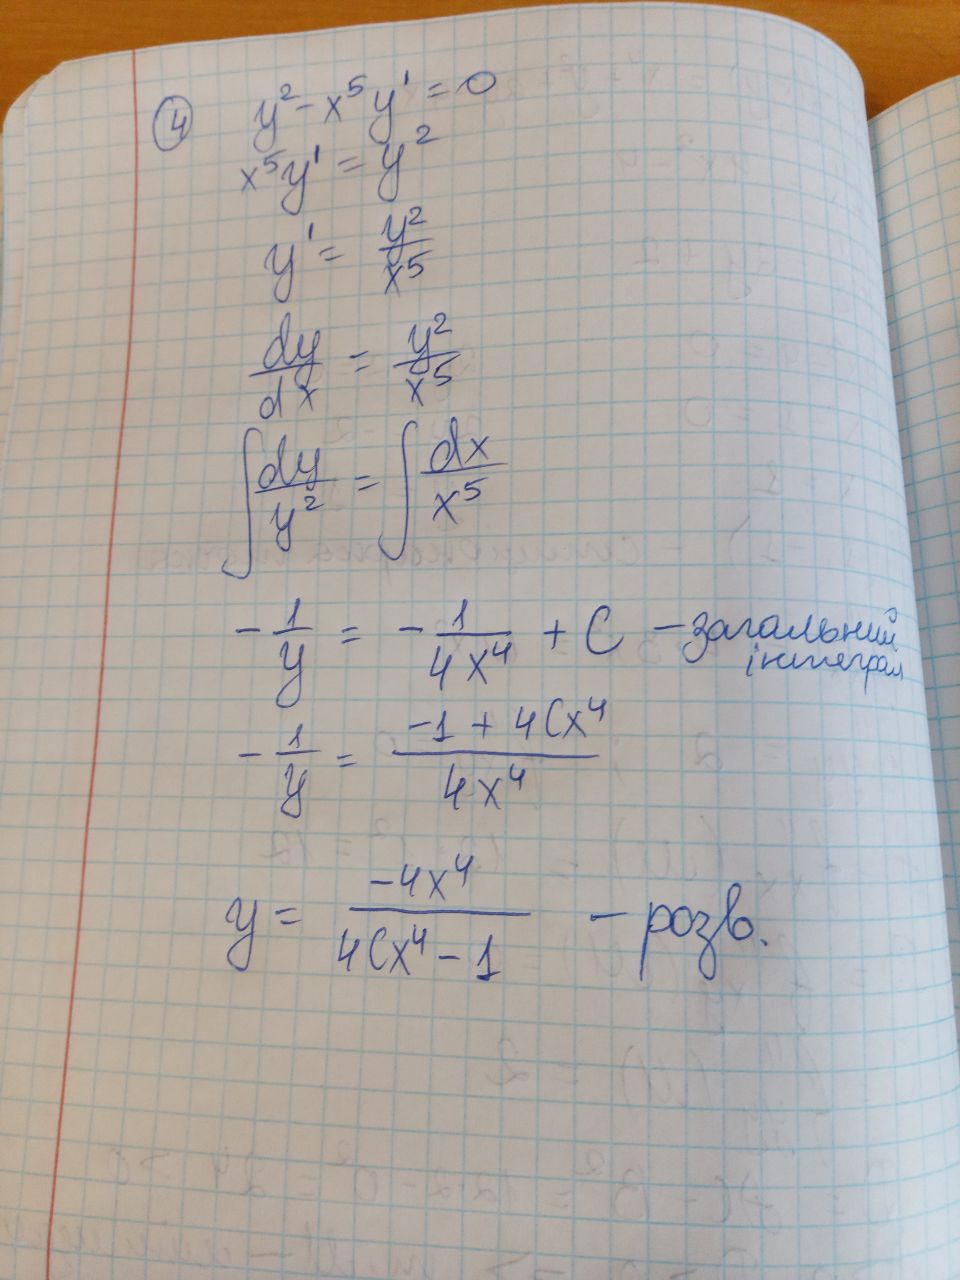 ④ y² - x⁵y' = 0
x⁵y' = y²
y' = y²/x⁵
dy/dx = y²/x⁵
∫ dy/y² = ∫ dx/x⁵
- 1/y = - 1/4x⁴ + C - загальний інтеграл
- 1/y = -1 + 4Cx⁴/4x⁴
y = -4x⁴/4Cx⁴ - 1 - розв.